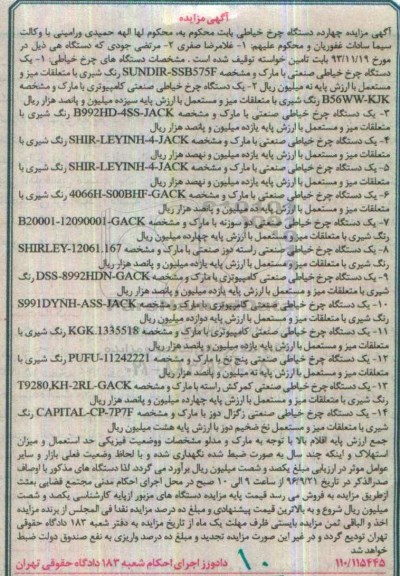 آگهی مزایده
آگهی مزایده چهارده دستگاه چرخ خیاطی بابت محکوم به، محکوم لها الهه حمیدی ورامینی با وکالت
سیما سادات غفوریان و محکوم علیهم: ۱- غلامرضا صفری ۲- مرتضی جودی که دستگاه هی ذیل در
مورخ ۹۳/۱۱/۱۹ بابت تامین خواسته توقیف شده است . مشخصات دستگاه های چرخ خیاطی: ۱- یک
دستگاه چرخ خیاطی صنعتی با مارک و مشخصه SUNDIR-SSB575F رنگ شیری با متعلقات میز و
مستعمل با ارزش پایه نه میلیون ریال ۲- یک دستگاه چرخ خیاطی صنعتی کامپیوتری با مارک و مشخصه
B56WW-KJK رنگ شیری با متعلقات میز و مستعمل با ارزش پایه سیزده میلیون و پانصد هزار ریال
۳- یک دستگاه چرخ خیاطی صنعتی با مارک و مشخصه B992HD-4SS-JACK رنگ شیری با
متعلقات میز و مستعمل با ارزش پایه یازده میلیون و پانصد هزار ریال
۴- یک دستگاه چرخ خیاطی صنعتی با مارک و مشخصه SHIR-LEYINH-4-JACK رنگ شیری با
متعلقات میز و مستعمل با ارزش پایه یازده میلیون و نهصد هزار ریال
۵- یک دستگاه چرخ خیاطی صنعتی با مارک و مشخصه SHIR-LEYINH-4-JACK رنگ شیری با
متعلقات میز و مستعمل با ارزش پایه یازده میلیون و نهصد هزار ریال
۶- یک دستگاه چرخ خیاطی صنعتی با مارک و مشخصه 4066H-S00BHF-GACK رنگ شیری با
متعلقات میز و مستعمل با ارزش پایه ده میلیون و پانصد هزار ریال
۷- یک دستگاه چرخ خیاطی صنعتی دو سوزنه با مارک و مشخصه B20001-12090001-GACK
رنگ شیری با متعلقات میز و مستعمل با ارزش پایه چهارده میلیون ریال
۸- یک دستگاه چرخ خیاطی صنعتی راسته دوز صنعتی با مارک و مشخصه SHIRLEY-12061.167
رنگ شیری با متعلقات میز و مستعمل با ارزش پایه یازده میلیون و پانصد هزار ریال
۹- یک دستگاه چرخ خیاطی صنعتی کامپیوتری با مارک و مشخصه DSS-8992HDN-GACK رنگ
شیری با متعلقات میز و مستعمل با ارزش پایه یازده میلیون و پانصد هزار ریال
۱۰- یک دستگاه چرخ خیاطی صنعتی کامپیوتری با مارک و مشخصه S991DYNH-ASS-JACK
رنگ شیری با متعلقات میز و مستعمل با ارزش پایه دوازده میلیون ریال
۱۱- یک دستگاه چرخ خیاطی صنعتی کامپیوتری با مارک و مشخصه KGK.1335518 رنگ شیری با
متعلقات میز و مستعمل با ارزش پایه یازده میلیون و پانصد هزار ریال
۱۲- یک دستگاه چرخ خیاطی صنعتی پنج نخ با مارک و مشخصه PUFU-11242221 رنگ شیری با
متعلقات میز و مستعمل با ارزش پایه ده میلیون و پانصد هزار ریال
۱۳- یک دستگاه چرخ خیاطی صنعتی کمرکش راسته با مارک و مشخصه T9280,KH-2RL-GACK
رنگ شیری با متعلقات میز و مستعمل با ارزش پایه چهارده میلیون ریال
۱۴- یک دستگاه چرخ خیاطی صنعتی زگزال دوز با مارک و مشخصه CAPITAL-CP-7P7F رنگ
شیری با متعلقات میز و مستعمل نخ ضخیم دوز با ارزش پایه هشت میلیون ریال
جمع ارزش پایه اقلام بالا با توجه به مارک و مدلو مشخصات ووضعیت فیزیکی حد استعمال و میزان
استهلاک و اینکه چند سال به صورت ضبط شده نگهداری شده و با لحاظ وضعیت فعلی بازار و سایر
عوامل موثر در ارزیابی مبلغ یکصد و شصت میلیون ریال برآورد می گردد، لذا دستگاه های مذکور با اوصاف
صدرالذکر در تاریخ ۹۶/۹/۲۱ از ساعت ۹ الی ۱۰ صبح در محل اجرای احکام مدنی مجتمع قضایی بعثت
ازطریق مزایده به فروش می رسد قیمت پایه مزایده دستگاه های مزبور ازپایه کارشناسی یکصد و شصت
میلیون ریال شروع و به بالاترین قیمت پیشنهادی و مبلغ ده درصد مزایده نقدا فی المجلس از برنده مزایده
اخذ و الباقی ثمن مزایده بایستی ظرف مهلت یک ماه از تاریخ مزایده به دفتر شعبه ۱۸۳ دادگاه حقوقی
تهران تودیع گردد و در غیر این صورت مزایده تجدید و مبلغ ده درصد واریزی به نفع صندوق دولت ضبط
خواهد شد
۱۱۰/۱۱۵۴۴۵ دادورز اجرای احکام شعبه ۱۸۳ دادگاه حقوقی تهران
۱۰